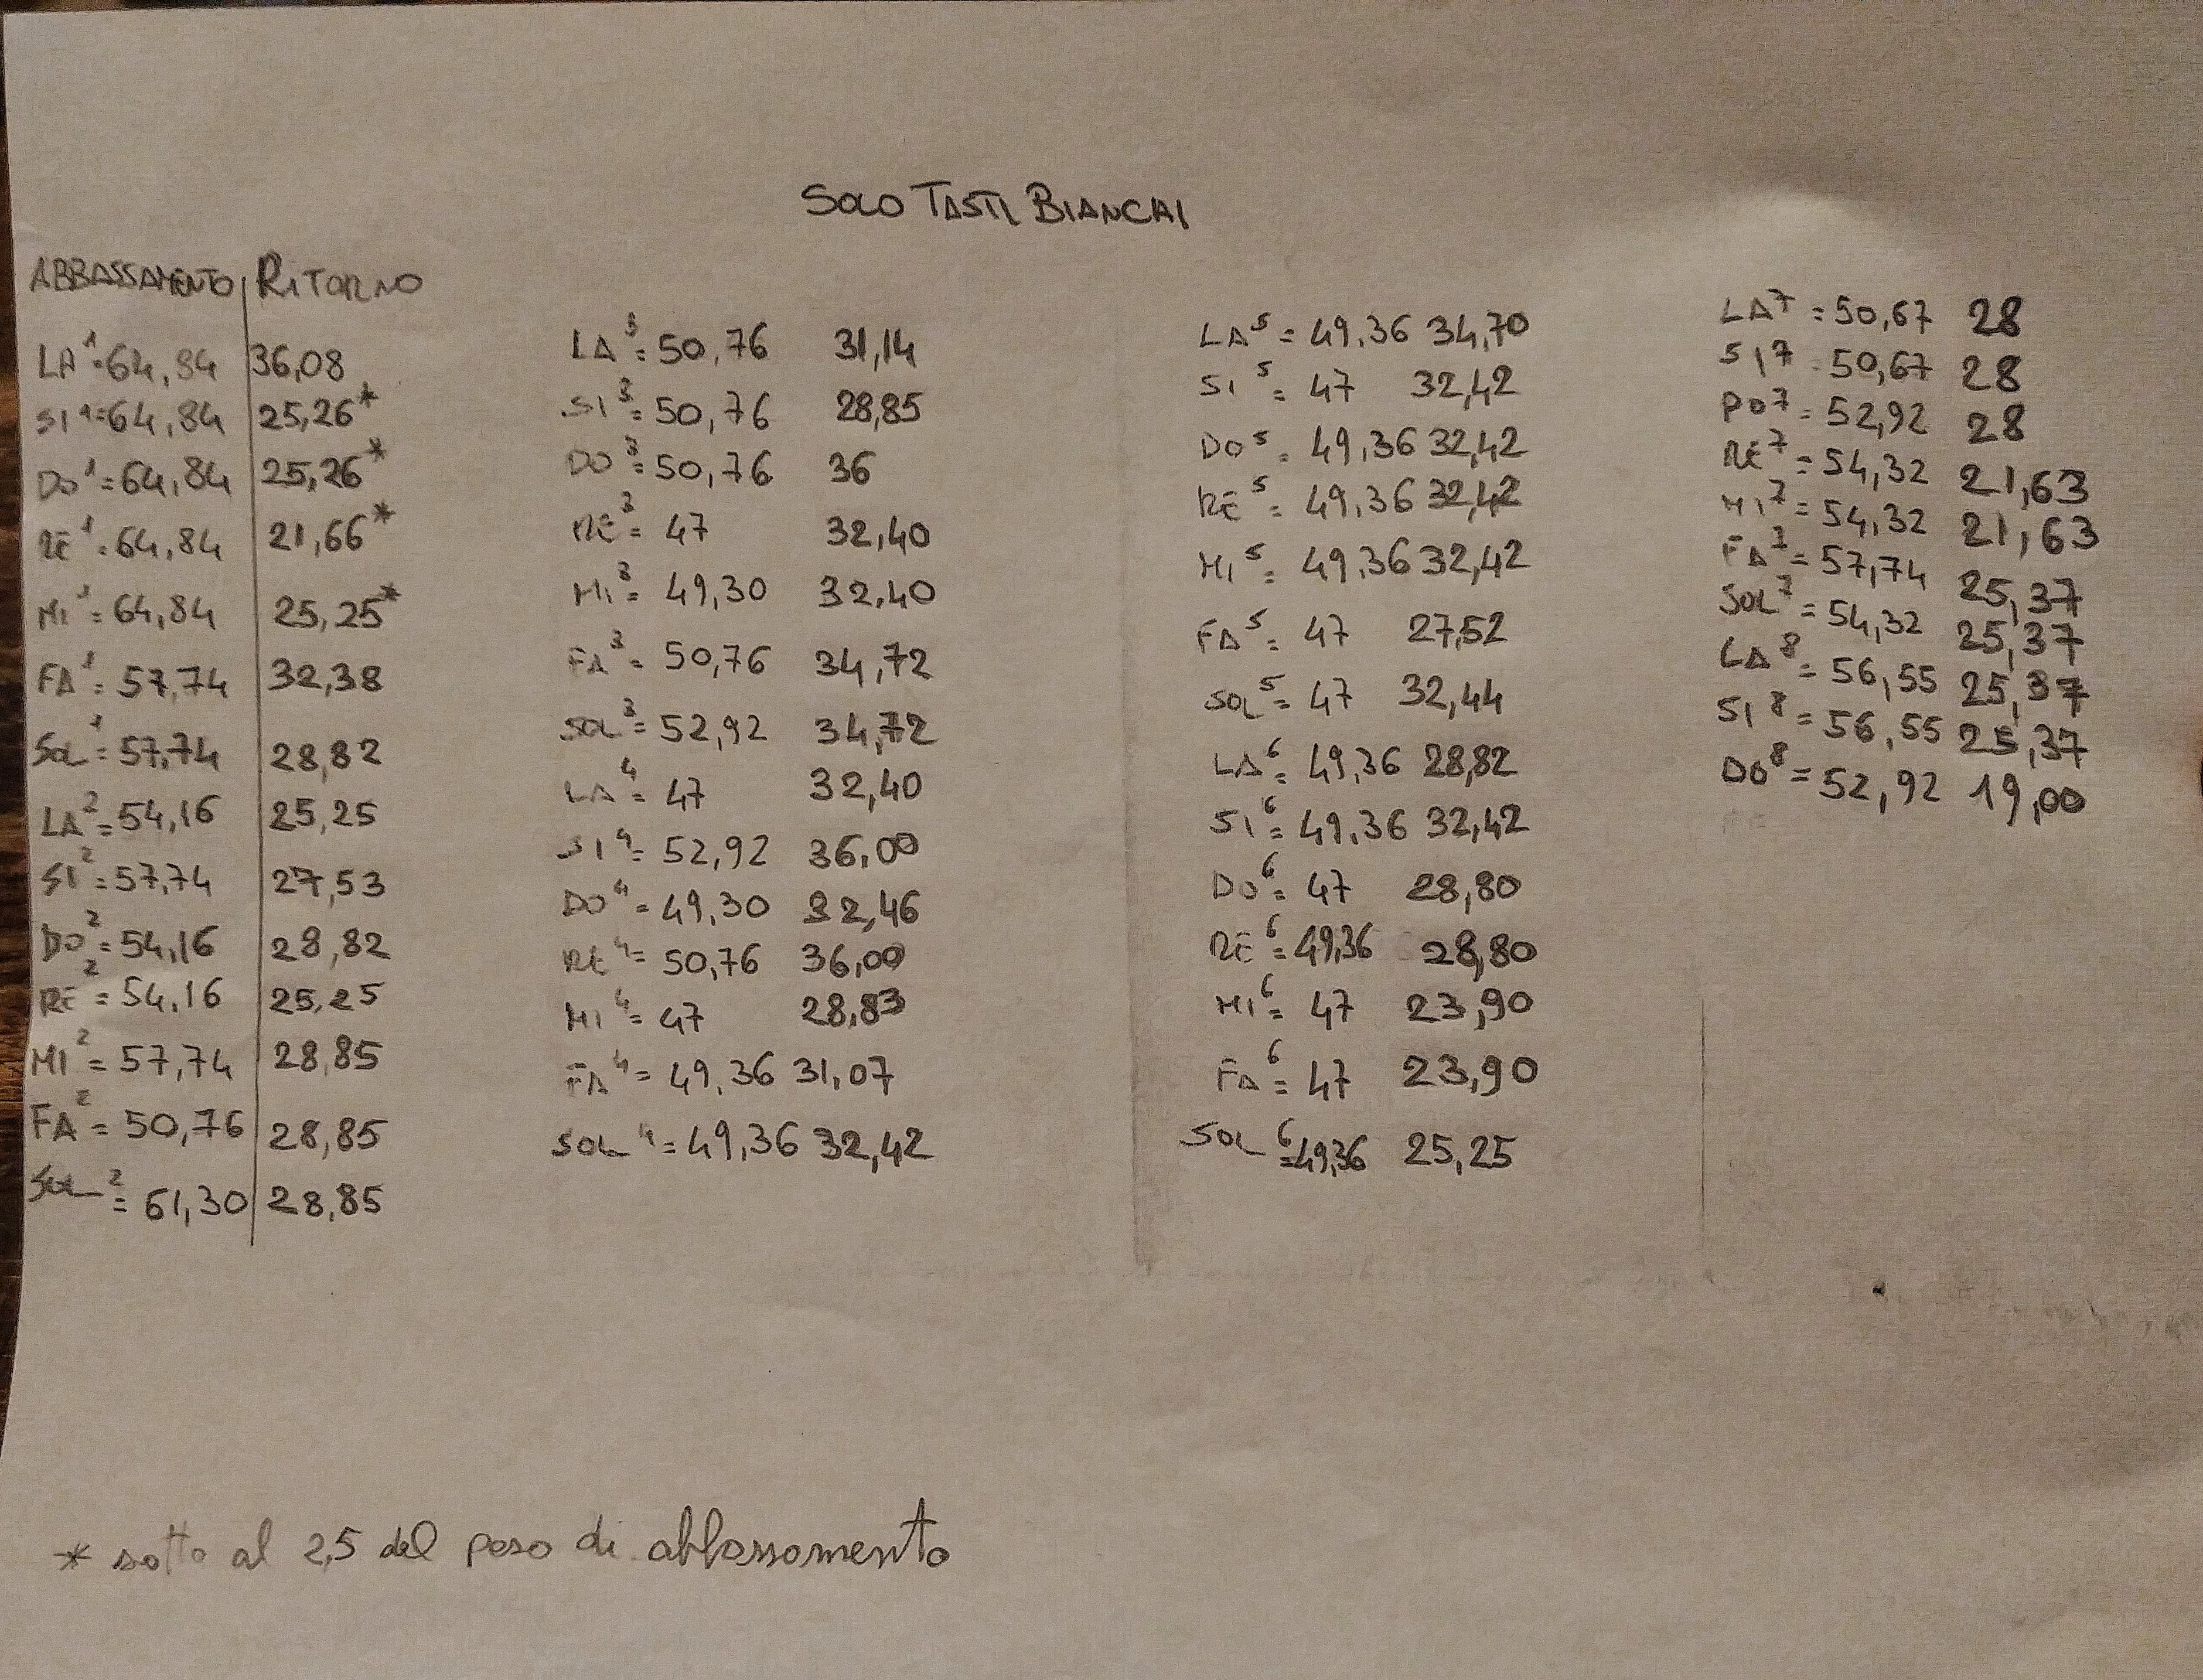 SOLO TASTI BIANCHI
ABBASSAMENTO RITORNO
LA¹=64,84 36,08
SI¹=64,84 25,26*
DO¹=64,84 25,26*
RE¹=64,84 21,66*
MI¹=64,84 25,25*
FA¹=57,74 32,38
SOL¹=57,74 28,82
LA²=54,16 25,25
SI²=57,74 27,53
DO²=54,16 28,82
RE²=54,16 25,25
MI²=57,74 28,85
FA²=50,76 28,85
SOL²=61,30 28,85
LA³=50,76 31,14
SI³=50,76 28,85
DO³=50,76 36
RE³=47 32,40
MI³=49,30 32,40
FA³=50,76 34,72
SOL³=52,92 34,72
LA⁴=47 32,40
SI⁴=52,92 36,00
DO⁴=49,30 32,46
RE⁴=50,76 36,00
MI⁴=47 28,83
FA⁴=49,36 31,07
SOL⁴=49,36 32,42
LA⁵=49,36 34,70
SI⁵=47 32,42
DO⁵=49,36 32,42
RE⁵=49,36 32,42
MI⁵=49,36 32,42
FA⁵=47 27,52
SOL⁵=47 32,44
LA⁶=49,36 28,82
SI⁶=49,36 32,42
DO⁶=47 28,80
RE⁶=49,36 28,80
MI⁶=47 23,90
FA⁶=47 23,90
SOL⁶=49,36 25,25
LA⁷=50,67 28
SI⁷=50,67 28
DO⁷=52,92 28
RE⁷=54,32 21,63
MI⁷=54,32 21,63
FA⁷=57,74 25,37
SOL⁷=54,32 25,37
LA⁸=56,55 25,37
SI⁸=56,55 25,37
DO⁸=52,92 19,00
* sotto al 2,5 del peso di abbassamento